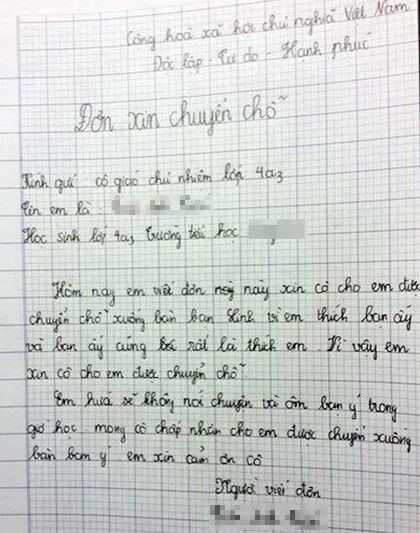 Cộng hoà xã hội chủ nghĩa Việt Nam
Độc lập - Tự do - Hạnh phúc
Đơn xin chuyển chỗ
Kính gửi : cô giáo chủ nhiệm lớp 4a3
Tên em là :
Học sinh lớp 4a3 trường tiểu học
Hôm nay em viết đơn này xin cô cho em được
chuyển chỗ xuống bàn bạn Linh vì em thích bạn ấy
và bạn ấy cũng rất là thích em. Vì vậy em
xin cô cho em được chuyển chỗ.
Em hứa sẽ không nói chuyện và ôm bạn ý trong
giờ học. mong cô chấp nhận cho em được chuyển xuống
bàn bạn ý em xin cảm ơn cô
Người viết đơn